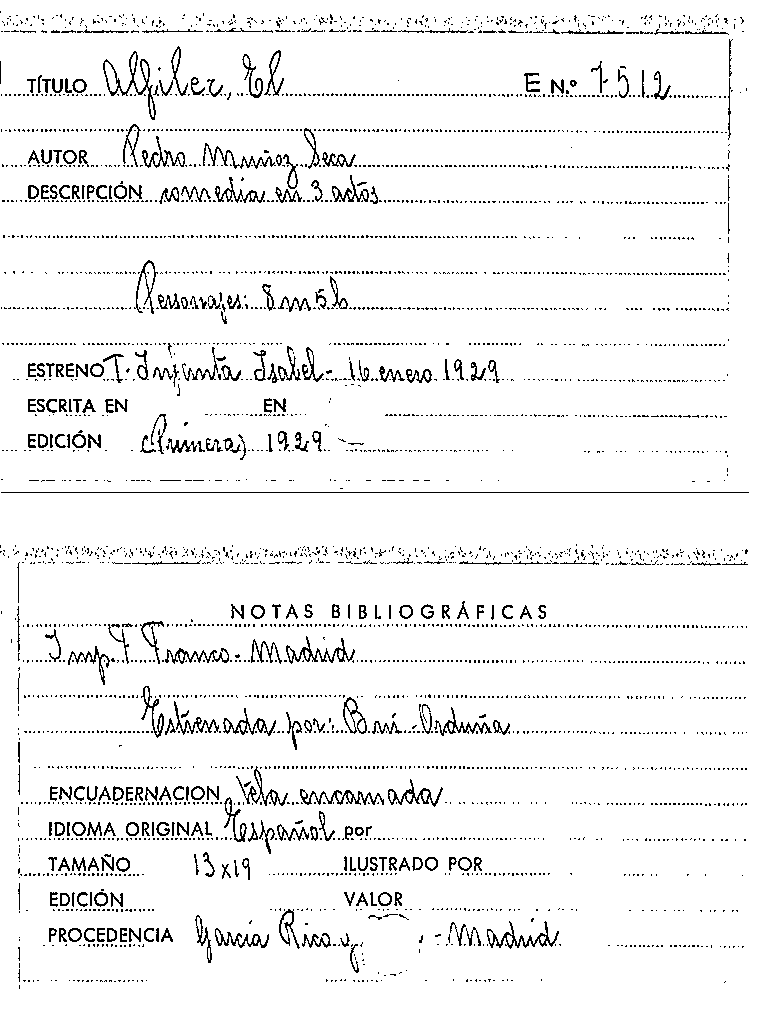 TÍTULO Alfiler, El E N.º 7512
AUTOR Pedro Muñoz Seca
DESCRIPCIÓN comedia en 3 actos
Personajes: 8 m 5 h
ESTRENO T. Infanta Isabel - 16 enero 1929
ESCRITA EN EN
EDICIÓN (Primera) 1929 -
NOTAS BIBLIOGRÁFICAS
Imp. F Franco - Madrid
Estrenada por: Brú - Orduña
ENCUADERNACION tela encarnada
IDIOMA ORIGINAL Español por
TAMAÑO 13x19 ILUSTRADO POR
EDICIÓN VALOR
PROCEDENCIA García Rico y - Madrid